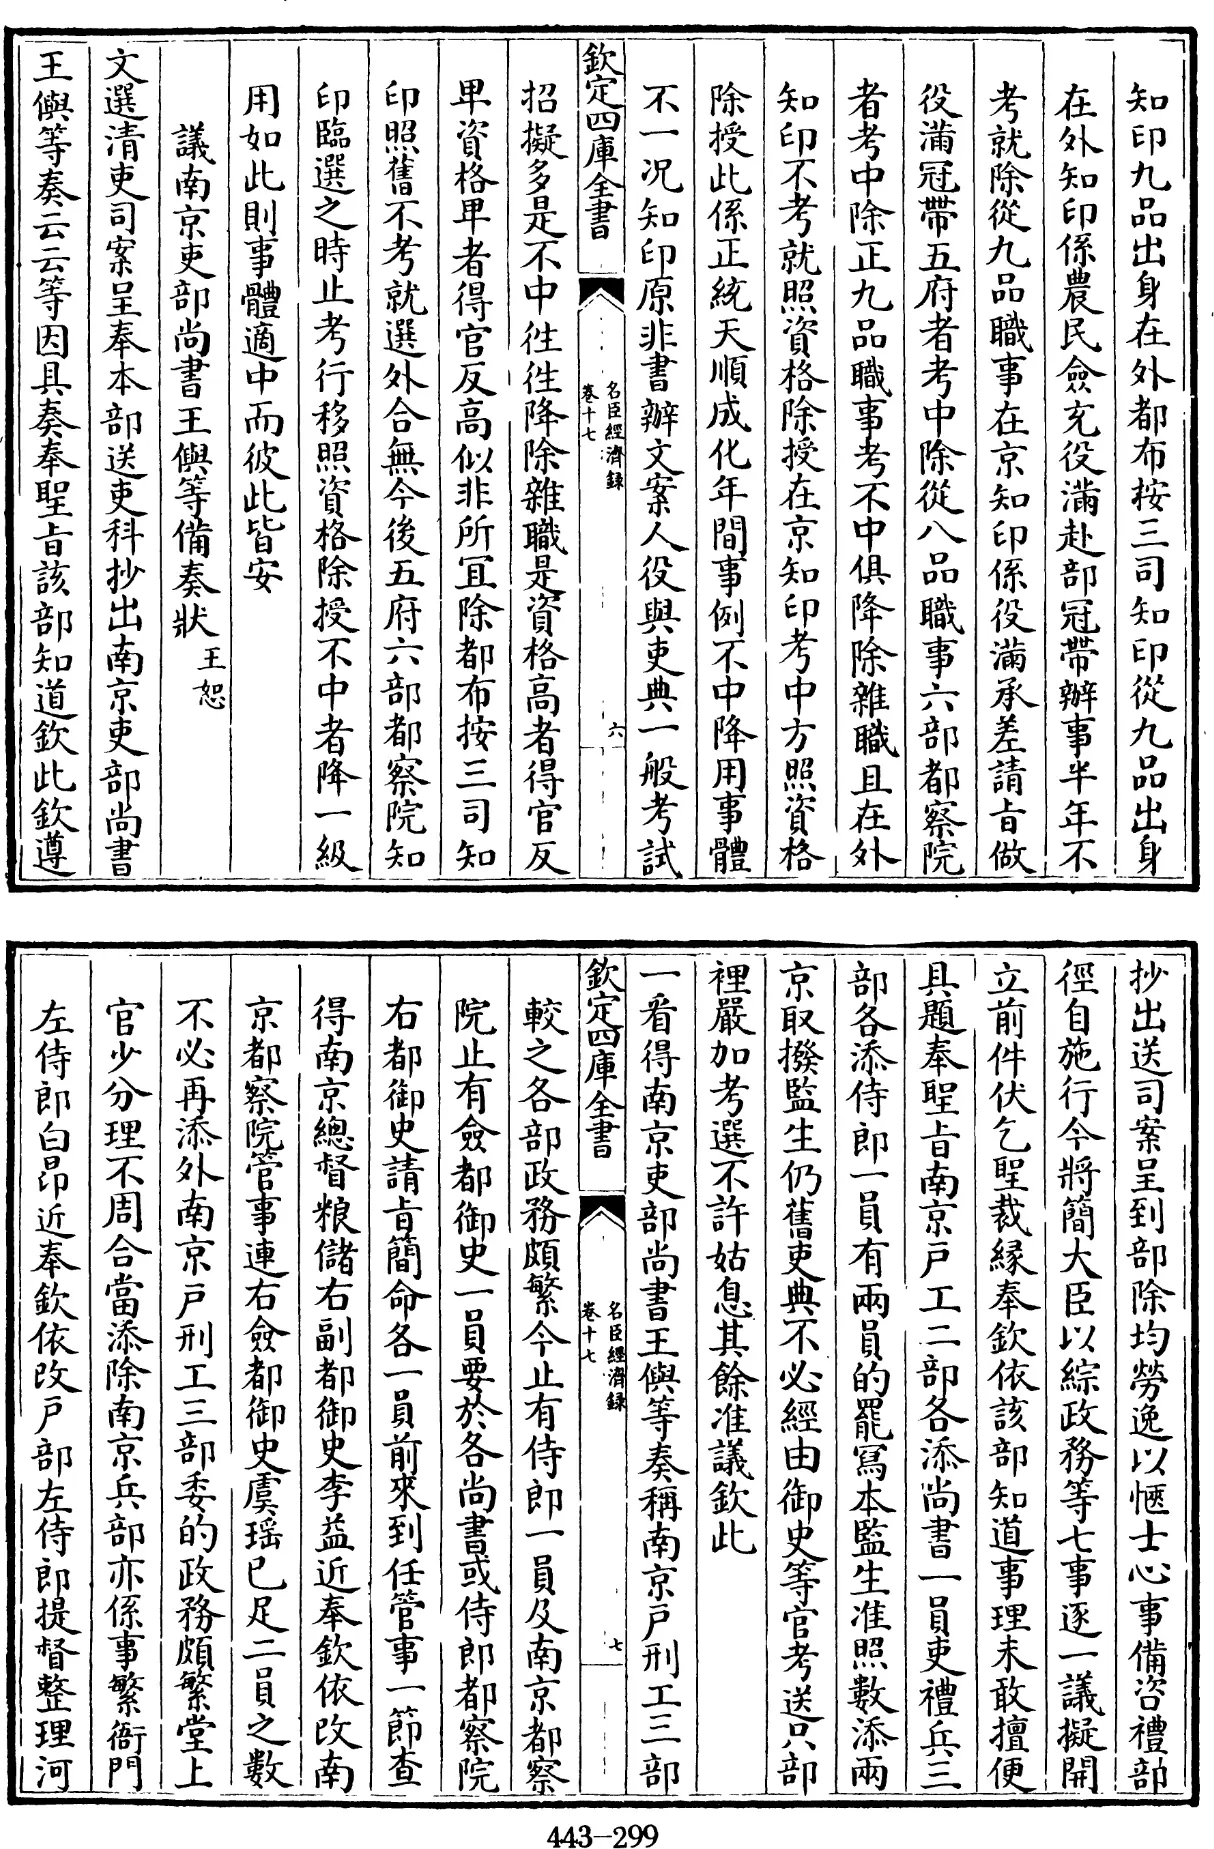 知印九品出身在外都布按三司知印從九品出身
在外知印係農民僉充役滿赴部冠帶辦事半年不
考就除從九品職事在京知印係役滿承差請旨做
役滿冠帶五府者考中除從八品職事六部都察院
者考中除正九品職事考不中俱降除雜職且在外
知印不考就照資格除授在京知印考中方照資格
除授此係正統天順成化年間事例不中降用事體
不一况知印原非書辦文案人役與吏典一般考試
欽定四庫全書
名臣經濟錄
卷十七
六
招擬多是不中徃徃降除雜職是資格高者得官反
卑資格卑者得官反高似非所宜除都布按三司知
印照舊不考就選外合無今後五府六部都察院知
印臨選之時止考行移照資格除授不中者降一級
用如此則事體適中而彼此皆安
議南京吏部尚書王㒜等備奏狀 王恕
文選清吏司案呈奉本部送吏科抄出南京吏部尚書
王㒜等奏云云等因具奏奉聖旨該部知道欽此欽遵
抄出送司案呈到部除均勞逸以愜士心事備咨禮部
徑自施行今將簡大臣以綜政務等七事逐一議擬開
立前件伏乞聖裁縁奉欽依該部知道事理未敢擅便
具題奉聖旨南京戸工二部各添尚書一員吏禮兵三
部各添侍郎一員有兩員的罷寫本監生准照數添兩
京取撥監生仍舊吏典不必經由御史等官考送只部
裡嚴加考選不許姑息其餘准議欽此
一看得南京吏部尚書王㒜等奏稱南京戸刑工三部
欽定四庫全書
名臣經濟錄
卷十七
七
較之各部政務頗繁今止有侍郎一員及南京都察
院止有僉都御史一員要於各尚書或侍郎都察院
右都御史請旨簡命各一員前來到任管事一節查
得南京總督粮儲右副都御史李益近奉欽依改南
京都察院管事連右僉都御史虞瑶已足二員之數
不必再添外南京戸刑工三部委的政務頗繁堂上
官少分理不周合當添除南京兵部亦係事繁衙門
左侍郎白昂近奉欽依改戸部左侍郎提督整理河
443-299